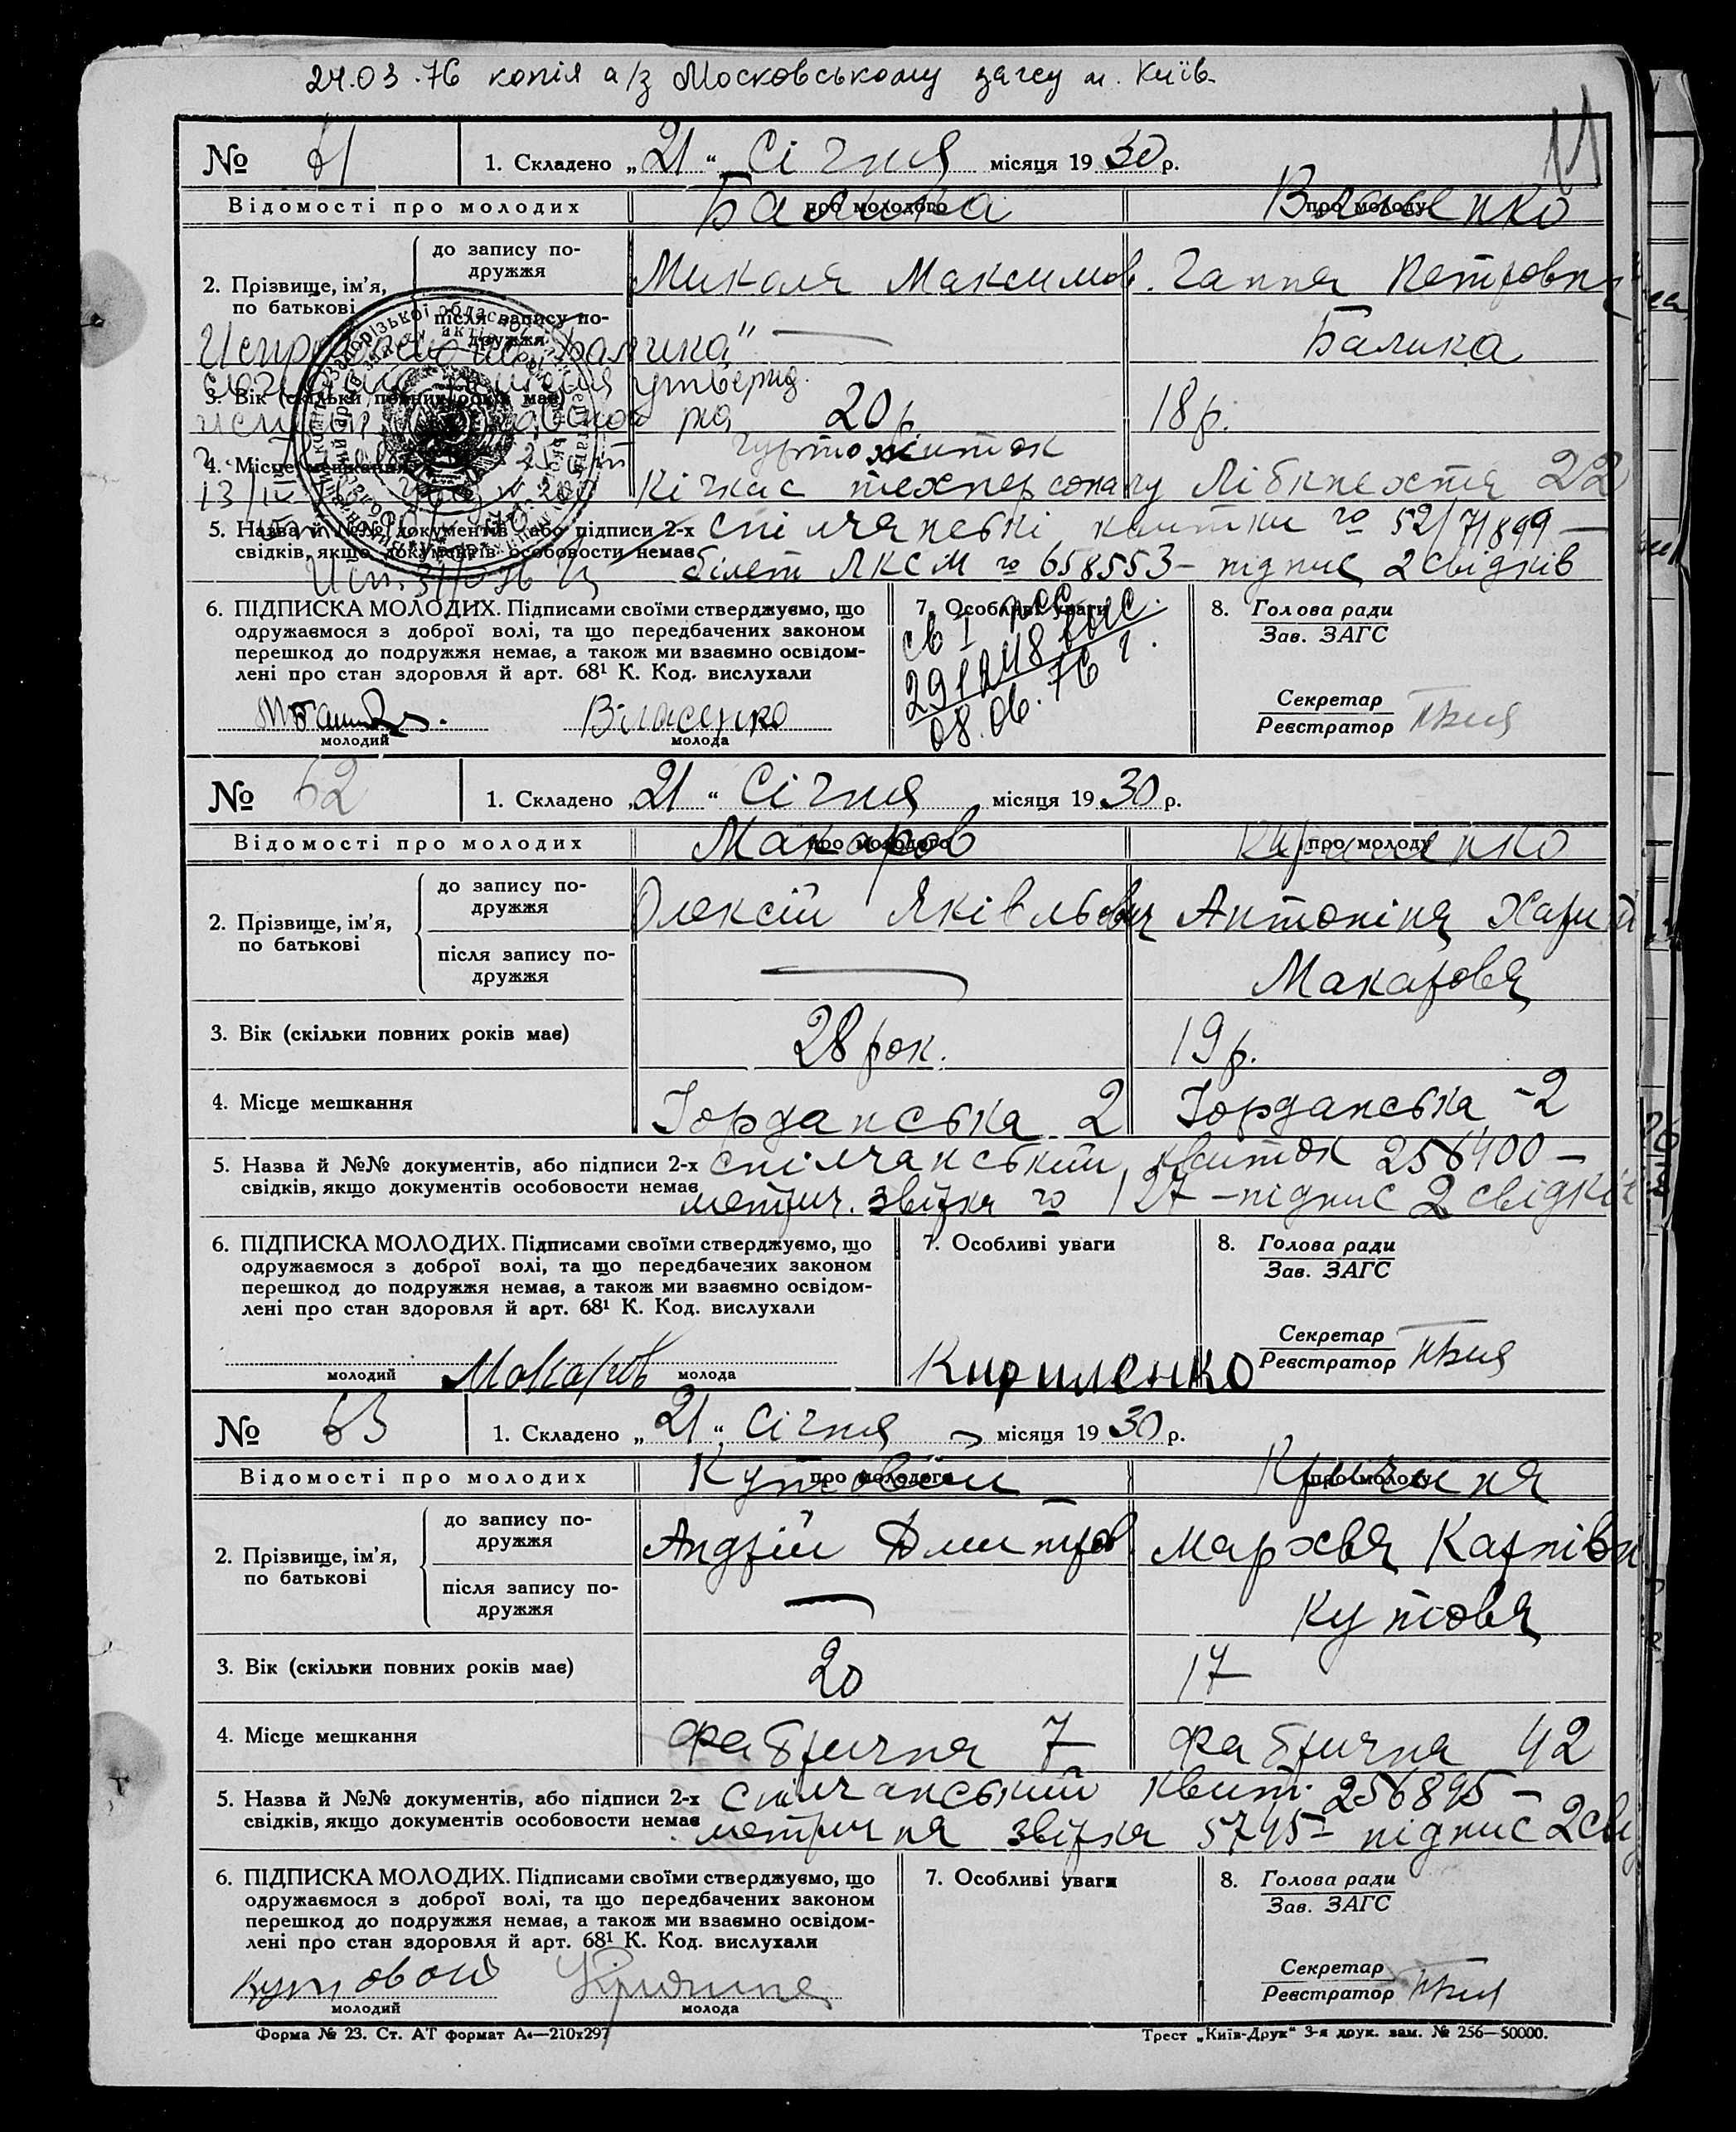 24.03.76 копія а/з Московському загсу м. Київ
№ 61 1. Складено „21“ Січня місяця 1930 р.
Відомості про молодих про молодого про молоду
Балика Власенко
2. Прізвище, ім'я, по батькові
до запису подружжя
Микола Максимов. Ганна Петровна
після запису подружжя
— Балика
3. Вік (скільки повних років має) 20 р. 18 р.
4. Місце мешкання
гуртожиток
Кічкас техперсоналу Лібкнехта 22
5. Назва й №№ документів, або підписи 2-х спілчанські квитки № 52/7/899 —
свідків, якщо документів особовости немає білет ЛКСМ № 658553 — підпис 2 свідків
6. ПІДПИСКА МОЛОДИХ. Підписами своїми стверджуємо, що
одружаємося з доброї волі, та що передбачених законом
перешкод до подружжя немає, а також ми взаємно освідом-
лені про стан здоровля й арт. 68¹ К. Код. вислухали
молодий Власенко молода
7. Особливі уваги
св I
291248
08.06.76 г.
8. Голова ради
Зав. ЗАГС
Секретар
Реєстратор
№ 62 1. Складено „21“ Січня місяця 1930 р.
Відомості про молодих про молодого про молоду
Макаров Кириленко
2. Прізвище, ім'я, по батькові
до запису подружжя
Олексій Яківльович Антоніна Харит
після запису подружжя
— Макарова
3. Вік (скільки повних років має) 28 рок. 19 р.
4. Місце мешкання Іорданська 2 Іорданська - 2
5. Назва й №№ документів, або підписи 2-х спілчанський квиток 256400 —
свідків, якщо документів особовости немає метрич. звірка № 127 — підпис 2 свідків
6. ПІДПИСКА МОЛОДИХ. Підписами своїми стверджуємо, що
одружаємося з доброї волі, та що передбачених законом
перешкод до подружжя немає, а також ми взаємно освідом-
лені про стан здоровля й арт. 68¹ К. Код. вислухали
молодий Макаров молода Кириленко
7. Особливі уваги
8. Голова ради
Зав. ЗАГС
Секретар
Реєстратор
№ 63 1. Складено „21“ Січня місяця 1930 р.
Відомості про молодих про молодого про молоду
Кутовой
2. Прізвище, ім'я, по батькові
до запису подружжя
Андрій Дмитров. Мархва Карпівн
після запису подружжя
— Кутова
3. Вік (скільки повних років має) 20 17
4. Місце мешкання Фабрична 7 Фабрична 42
5. Назва й №№ документів, або підписи 2-х спілчанський квит. 256895 —
свідків, якщо документів особовости немає метрична звірка 5745 — підпис 2 сві
6. ПІДПИСКА МОЛОДИХ. Підписами своїми стверджуємо, що
одружаємося з доброї волі, та що передбачених законом
перешкод до подружжя немає, а також ми взаємно освідом-
лені про стан здоровля й арт. 68¹ К. Код. вислухали
Кутовой
молодий молода
7. Особливі уваги
8. Голова ради
Зав. ЗАГС
Секретар
Реєстратор
Форма № 23. Ст. АТ формат А₄—210х297 Трест „Київ-Друк“ 3-я друк. зам. № 256—50000.